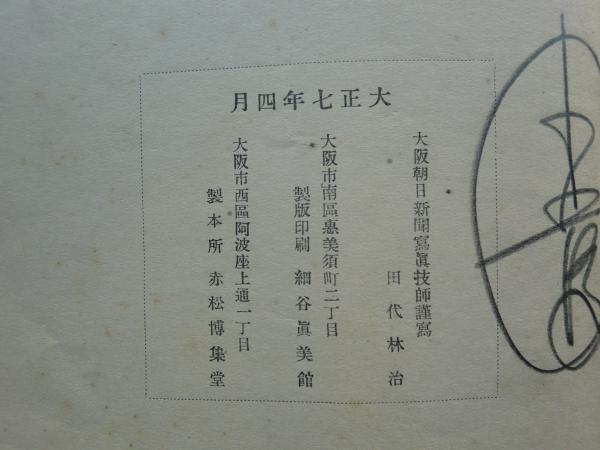 大正七年四月
大阪朝日新聞寫眞技師謹寫
田代林治
大阪市南區惠美須町二丁目
製版印刷 細谷眞美館
大阪市西區阿波座上通一丁目
製本所 赤松博集堂